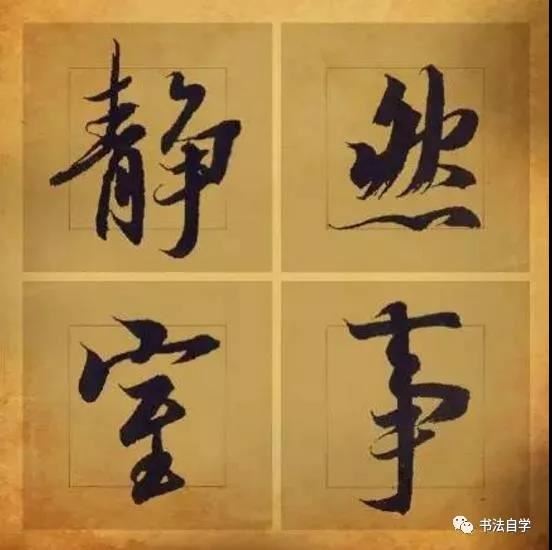 静然
室事
书法自学